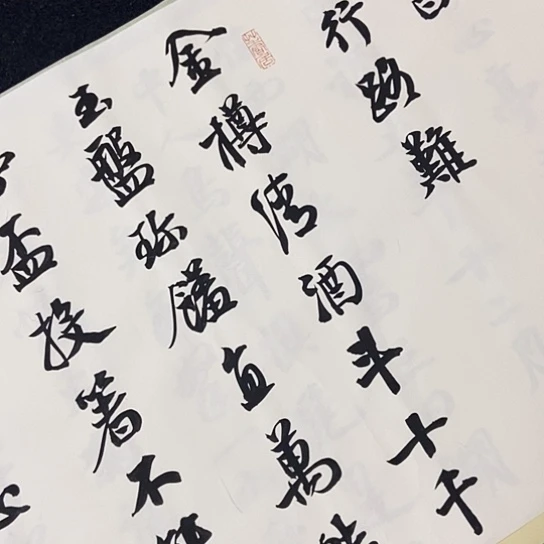 行路難
金樽清酒斗十千
玉盤珍饈直萬
盃投箸不能